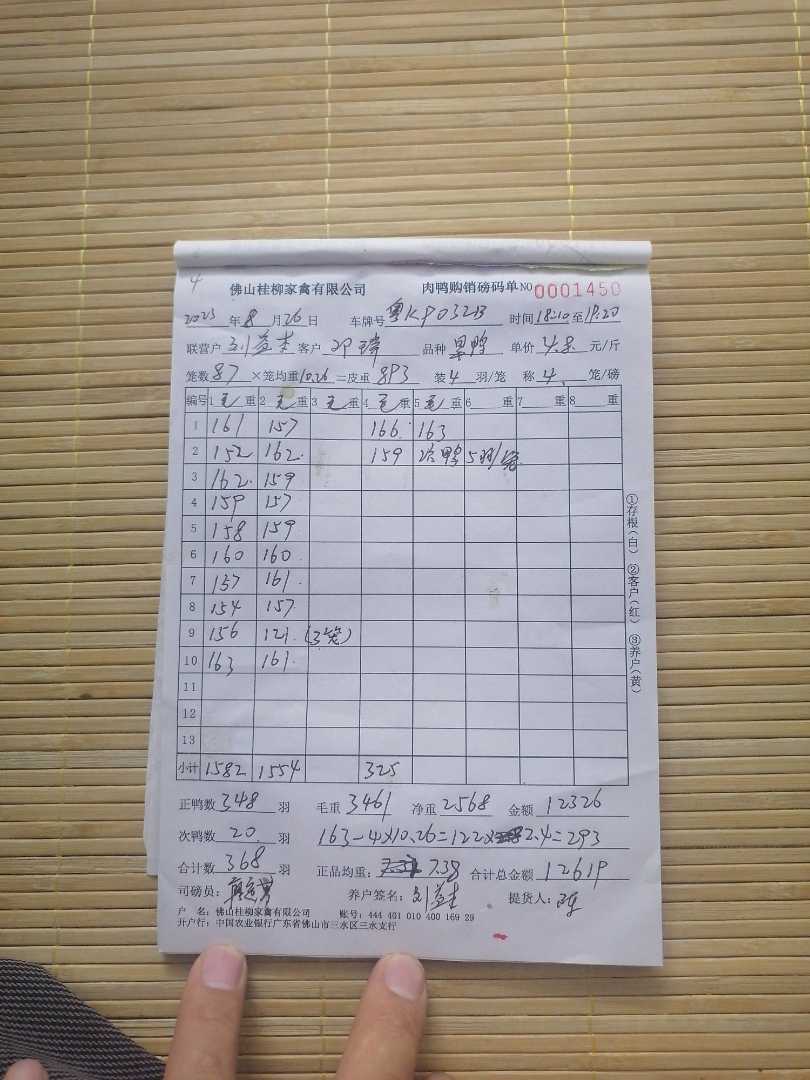 4
佛山桂柳家禽有限公司 肉鸭购销磅码单 NO 0001450
2023 年 8 月 26 日 车牌号 粤KP032B 时间 18:10 至 19:20
联营户 刘益 客户 邓 品种 黑鸭 单价 4.8 元/斤
笼数 87 ×笼均重 10.26 =皮重 893 装 4 羽/笼 称 4 笼/磅
编号 1 毛 重 2 毛 重 3 毛 重 4 毛 重 5 毛 重 6 重 7 重 8 重
1 161 157 166 163
2 152 162 159 次鸭 5羽/笼
3 162 159
4 159 157
5 158 159
6 160 160
7 157 161
8 154 157
9 156 121 (3笼)
10 163 161
11
12
13
小计 1582 1554 325
正鸭数 348 羽 毛重 3461 净重 2568 金额 12326
次鸭数 20 羽 163-4×10.26=122× 2.4=293
合计数 368 羽 正品均重: 7.38 合计总金额 12619
司磅员: 养户签名: 刘益 提货人:
户 名: 佛山桂柳家禽有限公司 账号: 444 401 010 400 169 29
开户行: 中国农业银行广东省佛山市三水区三水支行
①存根(白) ②客户(红) ③养户(黄)